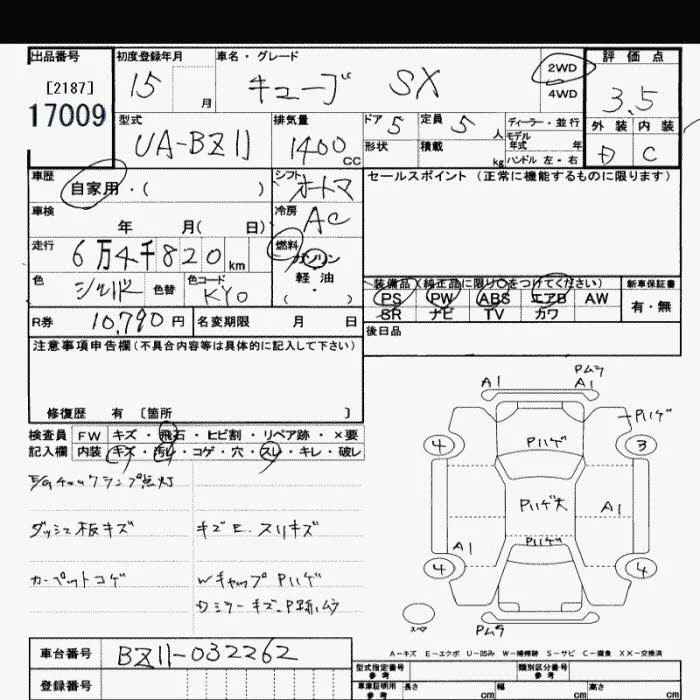 出品番号
[2187]
17009
初度登録年月
15 月
車名・グレード
キューブ SX
2WD
4WD
評価点
3.5
外装 内装
D C
型式
UA-BZ11
排気量
1400 CC
ドア 5
形状
定員 5 人
積載 kg
ディーラー・並行
モデル
年式 年
ハンドル 左・右
車歴
自家用・( )
シフト
オートマ
セールスポイント (正常に機能するものに限ります)
車検
年 月( 日)
冷房
AC
走行
6万4千820 km
燃料
ガソリン
軽油
( ・ )
色
シルバー
色替
色コード
KY0
装備品(純正品に限り○をつけてください)
PS PW ABS エアB AW
SR ナビ TV カワ
新車保証書
有・無
R券 10,790円
名変期限 月 日
後日品
注意事項申告欄(不具合内容等は具体的に記入して下さい)
修復歴 有 〔箇所 〕
検査員
記入欄
FW キズ・飛石・ヒビ割・リペア跡・×要
内装 キズ・汚レ・コゲ・穴・スレ・キレ・破レ
E/Gチェックランプ点灯
ダッシュ板キズ
キズE、スリキズ
カーペットコゲ
Wキャップ Pハゲ
Dミラーキズ、P跡ムラ
A1
Pムラ
A1
Pハゲ
4
Pハゲ
3
Pハゲ大
A1
A1
Pハゲ
4
4
スペア
Pムラ
A-キズ E-エクボ U-凹み W-補修跡 S-サビ C-腐食 XX-交換済
車台番号
BZ11-032262
登録番号
型式指定番号
参考
類別区分番号
参考
車庫証明用
参考
長さ cm
幅 cm
高さ cm